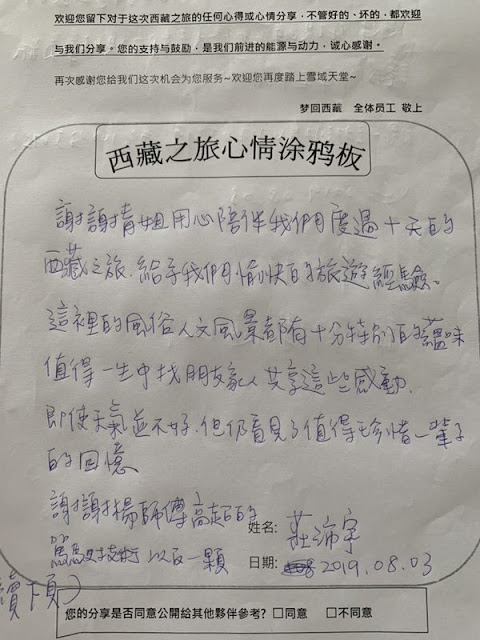 欢迎您留下对于这次西藏之旅的任何心得或心情分享，不管好的、坏的，都欢迎
与我们分享。您的支持与鼓励，是我们前进的能源与动力，诚心感谢。
再次感谢您给我们这次机会为您服务~欢迎您再度踏上雪域天堂~
梦回西藏　全体员工 敬上
西藏之旅心情涂鸦板
謝謝青姐用心陪伴我們度過十天的
西藏之旅，給予我們愉快的旅遊經驗。
這裡的風俗人文風景都有十分特別的蘊味
值得一生中找朋友家人共享這些感動，
即使天氣並不好，但仍看見了值得珍惜一輩子
的回憶
謝謝楊師傅高超的
駕駛技術以及一顆
姓名：莊沛宇
日期：2019.08.03
續下頁）
您的分享是否同意公開給其他夥伴參考？□同意　□不同意